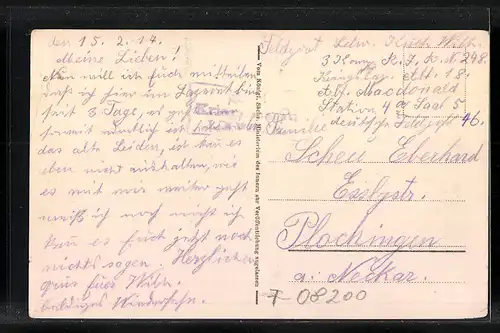 den 15. 2. 17.
Meine Lieben!
Nun will ich Euch mitteilen
daß ich hier im Lazarett bin
seit 8 Tage, es geht
soweit
das alte Leiden, ich kan es
eben nicht aushalten, wie
es mit mir weiter geht
weiß ich noch nicht ich
kan es Euch jetzt noch
nichts sagen. Herzlichen
grus Euer Wilh.
baldiges Wiedersehn.
Vom Königl. Sächs. Ministerium des Innern zur Veröffentlichung zugelassen
Feldpost Wilh.
3 Komp. R. J. R. N 248
Kriegslaz. Abt. 18.
Abt. Macdonald
Station 4 a Saal 5
deutsche Feldpost 46.
Familie
Scheu Eberhard
Esslgstr.
Plochingen
a. Neckar.
F 08200